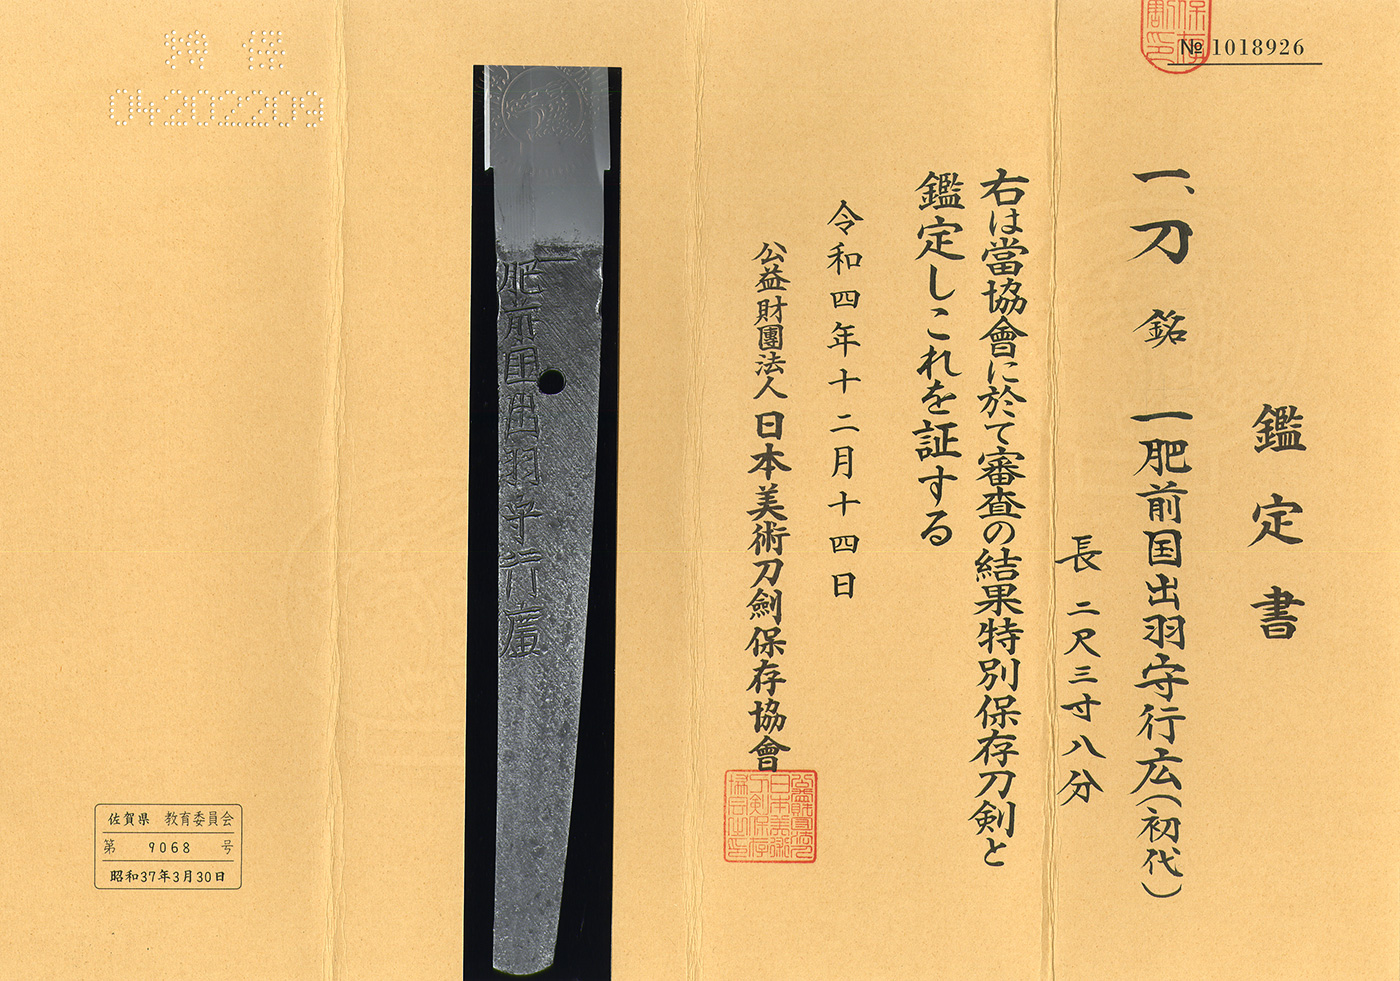 № 1018926
鑑定書
一、刀 銘 一肥前国出羽守行広(初代)
長 二尺三寸八分
右は當協會に於て審査の結果特別保存刀剣と
鑑定しこれを証する
令和四年十二月十四日
公益財團法人 日本美術刀劍保存協會
肥前国出羽守行廣
特保
04202209
佐賀県 教育委員会
第 9068 号
昭和37年3月30日